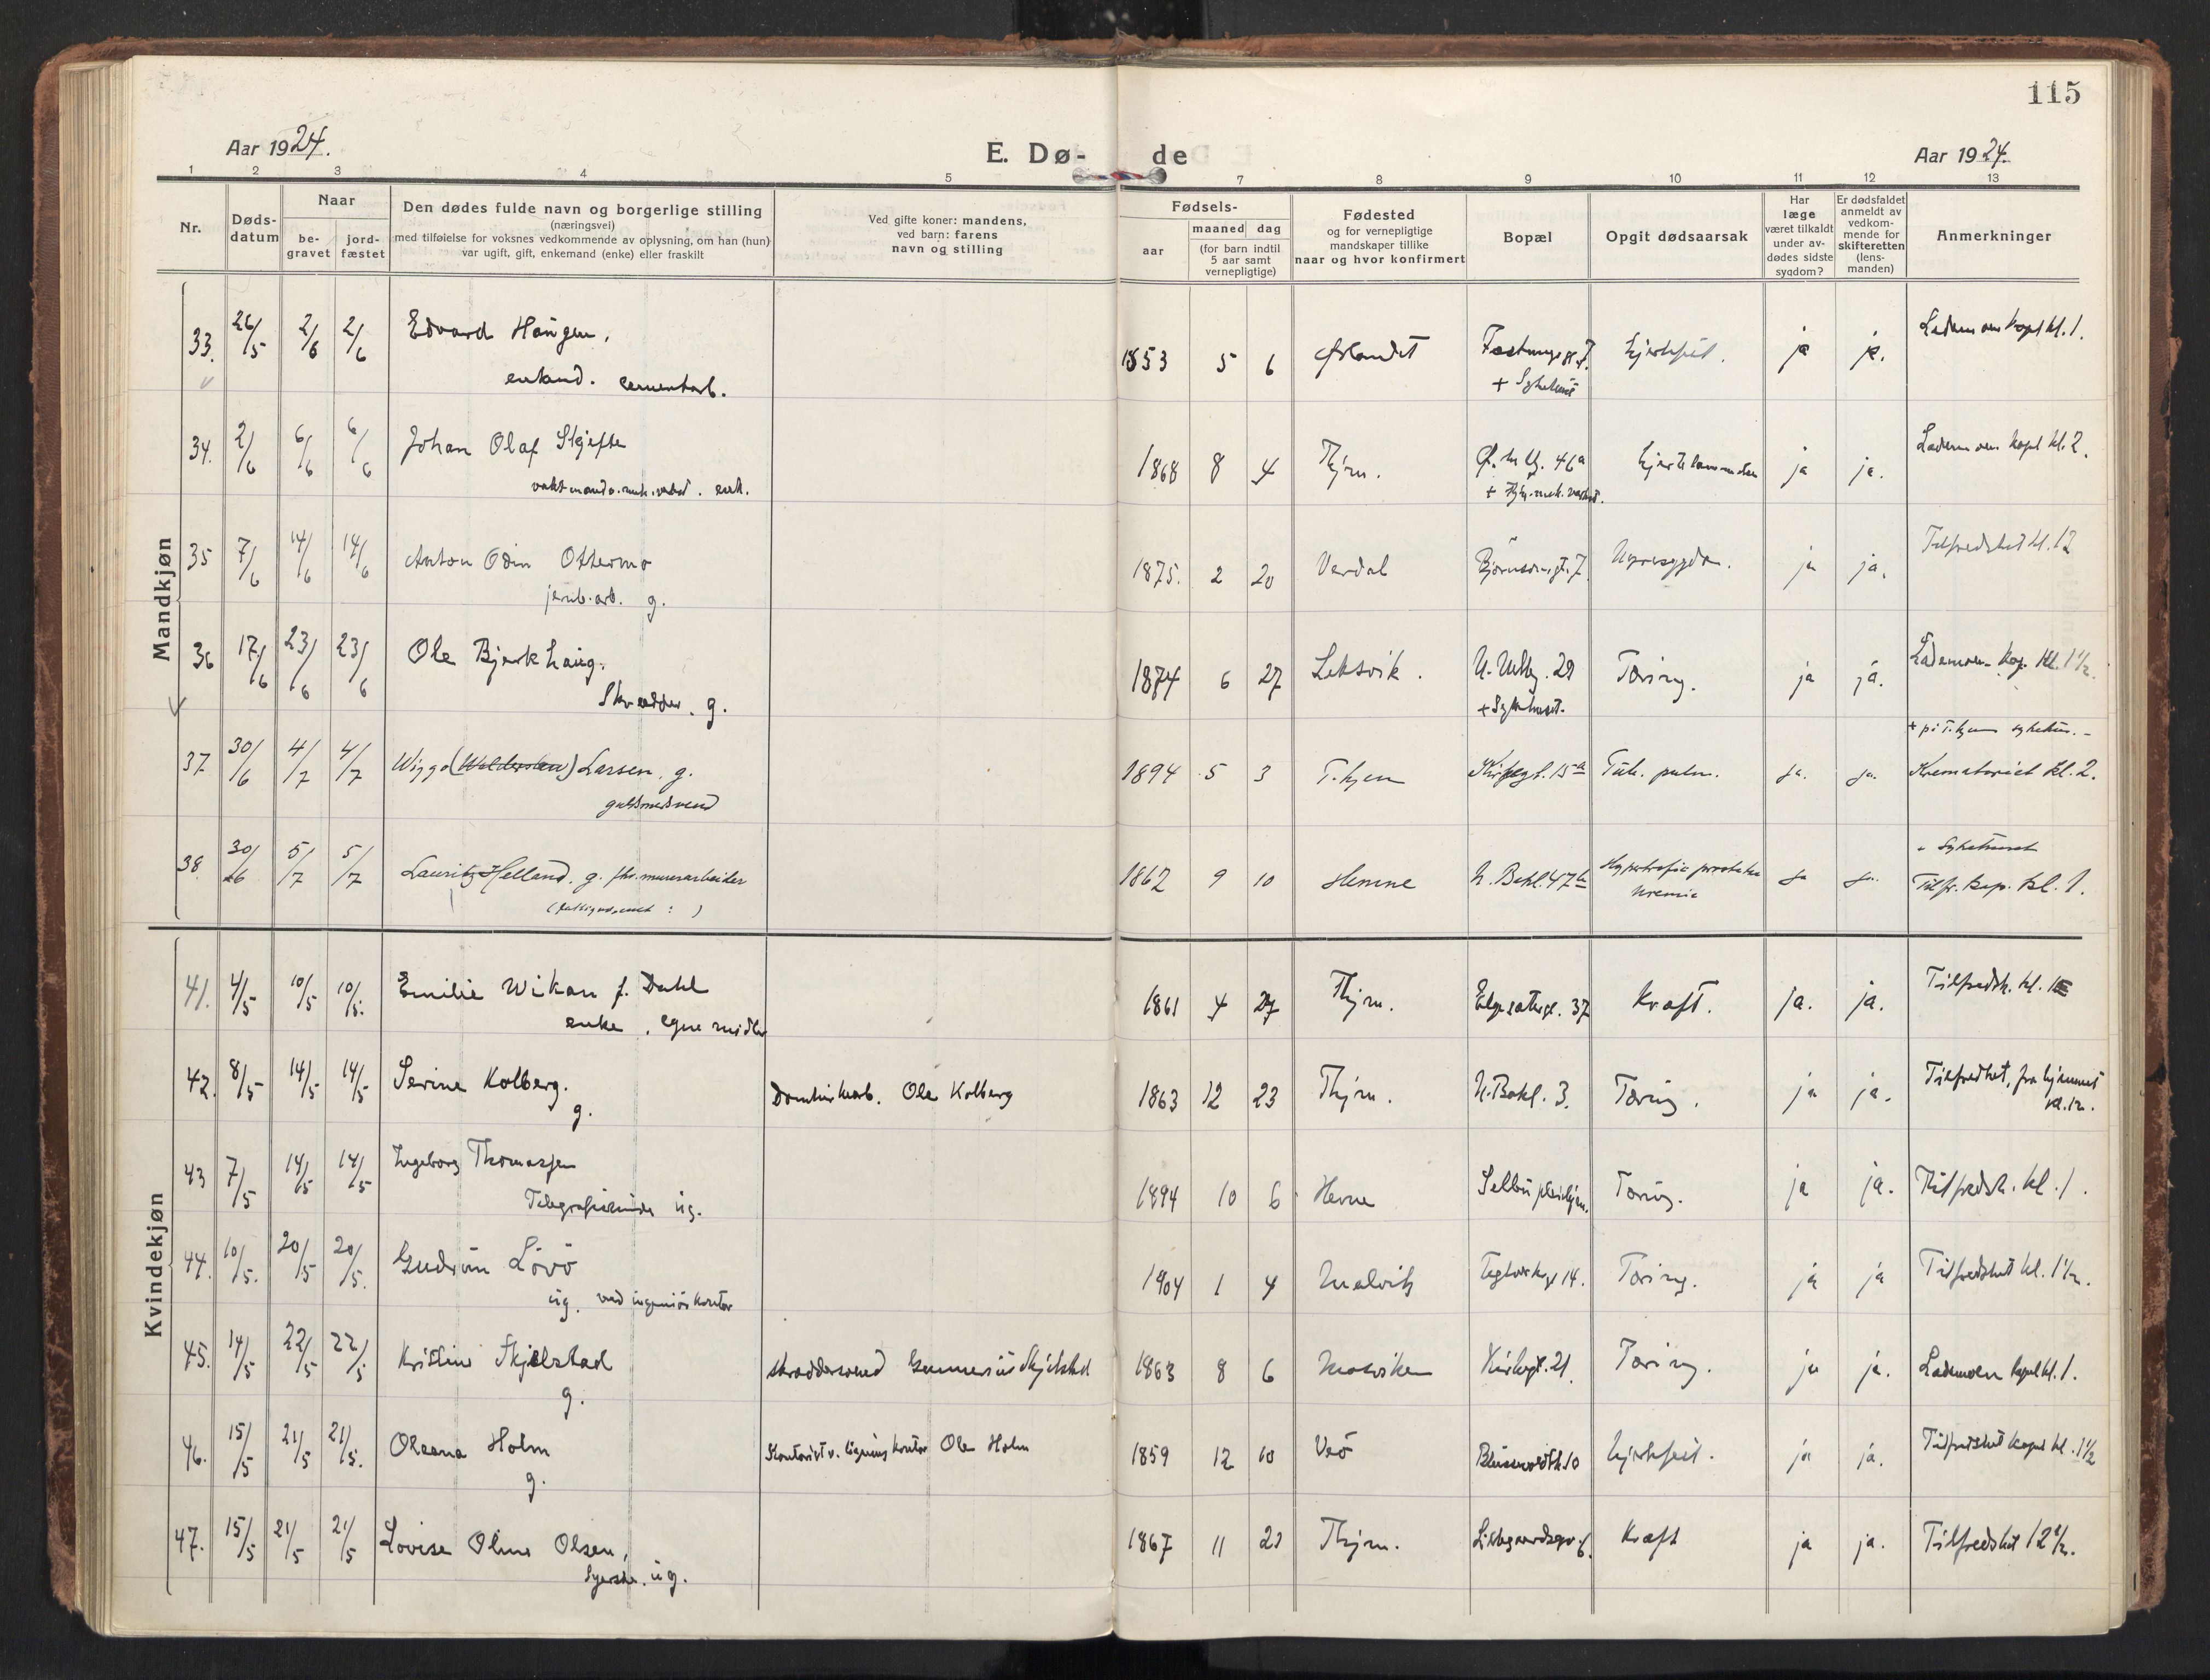 115
Aar 1924.
E. Dø- de
Aar 1924.
1 2 3 4 5 7 8 9 10 11 12 13
Nr.
Døds-
datum
Naar
be-
gravet
jord-
fæstet
Den dødes fulde navn og borgerlige stilling
(næringsvei)
med tilføielse for voksnes vedkommende av oplysning, om han (hun)
var ugift, gift, enkemand (enke) eller fraskilt
Ved gifte koner: mandens,
ved barn: farens
navn og stilling
Fødsels-
aar
maaned dag
(for barn indtil
5 aar samt
vernepligtige)
Fødested
og for vernepligtige
mandskaper tillike
naar og hvor konfirmert
Bopæl
Opgit dødsaarsak
Har
læge
været tilkaldt
under av-
dødes sidste
sygdom?
Er dødsfaldet
anmeldt av
vedkom-
mende for
skifteretten
(lens-
manden)
Anmerkninger
Mandkjøn
33. 26/5 2/6 2/6 Edvard Haugen, 1853 5 6 Ørlandet hjertefeil. ja ja. kl. 1.
enkemd. cementarb. + Sykehuset
34. 2/6 6/6 6/6 Johan Olaf Skjefte 1868 8 4 Thjm. 46a ja ja. kapel kl. 2.
35 7/6 14/6 14/6 Anton Odin Ottermo 1875. 2 20 Verdal Bjørnsonsgt. 7 Nyresygdom. ja ja. Tilfredshet kl. 12
jernb.arb. g.
36 17/6 23/6 23/6 Ole Bjerkhaug. 1874 6 27 Leksvik. 29 Tæring. ja ja. Lademoen kap. kl. 1 1/2.
Skrædder. g. + Sykehuset.
+ på T.hjem sykehus. -
37 30/6 4/7 4/7 Wiggo Larsen, g. 1894 5 3 T.hjem Kirkegt. 15a Tub. pulm. ja. ja. Krematoriet kl. 2.
guldsmedsvend
38 30/6 5/7 5/7 Lauritz Helland. g. fhv. murerarbeider 1862 9 10 Hemne N. Bakl. 47b Hypertrofia prostatae ja ja. Tilfr. kap. kl. 1.
Uremia
Sykehuset
Kvindekjøn
41. 4/5 10/5 10/5. Emilie Wikan f. Dahl 1861 4 27 Thjm. Elgesetergt. 37 Kræft. ja. ja. Tilfredsh. kl.
enke, egne midler
42. 8/5 14/5 14/5 Serine Kolberg. Ole Kolberg 1863 12 23 Thjm. N. Bakl. 3. Tæring. ja ja. Tilfredshet, fra hjemmet
g. kl. 12.
43 7/5 14/5 14/5 Ingeborg Thomassen 1894 10 6 Hevne Selbu pleiehjem. Tæring. ja ja. Tilfredsh. kl. 1.
Telegrafistinde ug.
44. 10/5. 20/5 20/5. Gudrun Lövö 1904 1 4 Malvik 14. Tæring. ja ja Tilfredshet kl. 1 1/2.
ug. ved ingeniörkontor
45. 14/5 22/5 22/5 Kristine Skjelstad skræddersvend Gunnerius Skjelstad 1863 8 6 Mosviken Kirkegt. 21. Tæring. ja ja. Lademoen kapel kl. 1.
g.
46. 15/5 21/5 21/5. Oleana Holm Kontorist v. ligningskontor Ole Holm 1859 12 10 Veö hjertefeil. ja ja. Tilfredshet kapel kl. 1 1/2
g.
47. 15/5 21/5 21/5 Lovise Oline Olsen, 1867 11 Thjm. Kræft ja ja. Tilfredshet 12 1/2.
Syerske. ug.